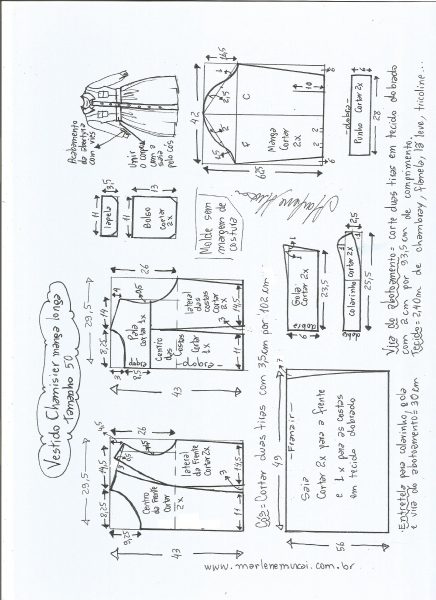 Vestido Chamisier manga longa
Tamanho 50
Acabamento
da abertura
com viés
Unir
o corpo
com a
saia
pelo cós
14,5
42
2,5
2
4,5
C
C
10
Manga
Cortar
2x
2
2
6
6
-dobra-
Punho Cortar 2x
28
3,5
11
lapela
13
11
Bolso
cortar
2x
Molde com
margem de
costura
Marlene Mukai
26
29,5
14
8,25
4
Pala
Cortar 2x
3
8,5
lateral
das costas
Cortar 2x
Centro
das
Costas
Cortar
1x
-dobra-
14,5
11
43
Gola
Cortar 2x
dobra
23,5
9
2,5
colarinho Cortar 2x
dobra
25,5
26
29,5
8,25
9,25
Centro
da frente
Cortar
2x
lateral da frente
Cortar 2x
3
14,5
11
43
Cós = Cortar duas tiras com 3,5cm por 102cm
49
7
-Franzir-
Saia
Cortar 2x para a frente
e 1x para as costas
em tecido dobrado
56
Vira do abotoamento = corte duas tiras em tecido dobrado
com 2cm por 93,5cm de comprimento.
Tecido = 2,40m de chambray, flanela, lã leve, tricoline...
Entretela para colarinho, gola
e vira do abotoamento = 30cm
www.marlenemukai.com.br